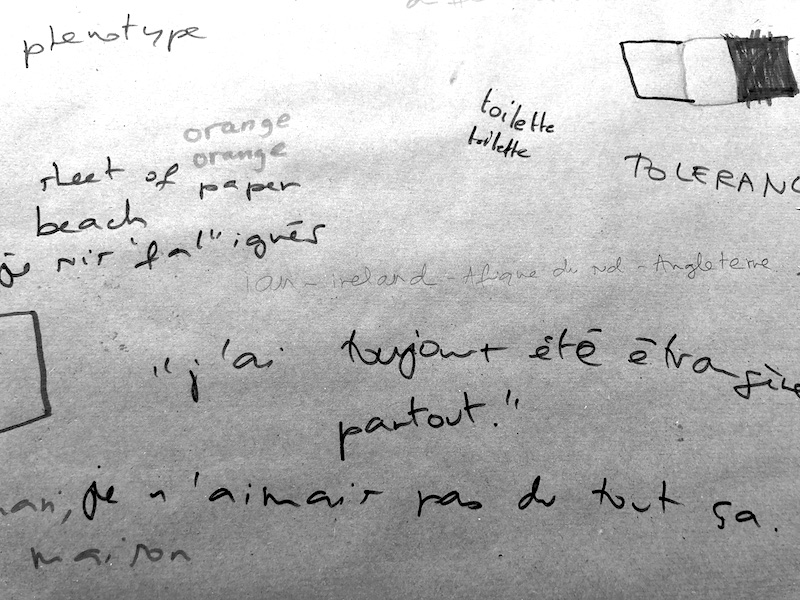 phenotype
toilette
toilette
orange
orange
TOLERANC
sheet of paper
beach
ignés
ireland - Afrique du sud - Angleterre
"j'ai toujours été étrangère
partout."
je n'aimais pas du tout ça.
maison